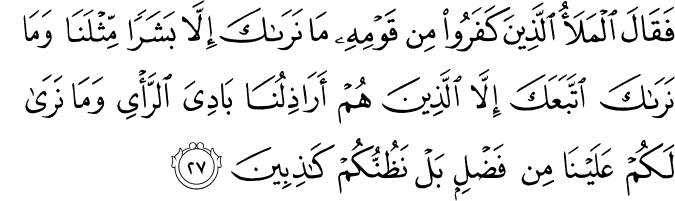 فَقَالَ ٱلۡمَلَأُ ٱلَّذِينَ كَفَرُواْ مِن قَوۡمِهِۦ مَا نَرَىٰكَ إِلَّا بَشَرٗا مِّثۡلَنَا وَمَا
نَرَىٰكَ ٱتَّبَعَكَ إِلَّا ٱلَّذِينَ هُمۡ أَرَاذِلُنَا بَادِيَ ٱلرَّأۡيِ وَمَا نَرَىٰ
لَكُمۡ عَلَيۡنَا مِن فَضۡلِۭ بَلۡ نَظُنُّكُمۡ كَٰذِبِينَ ٢٧